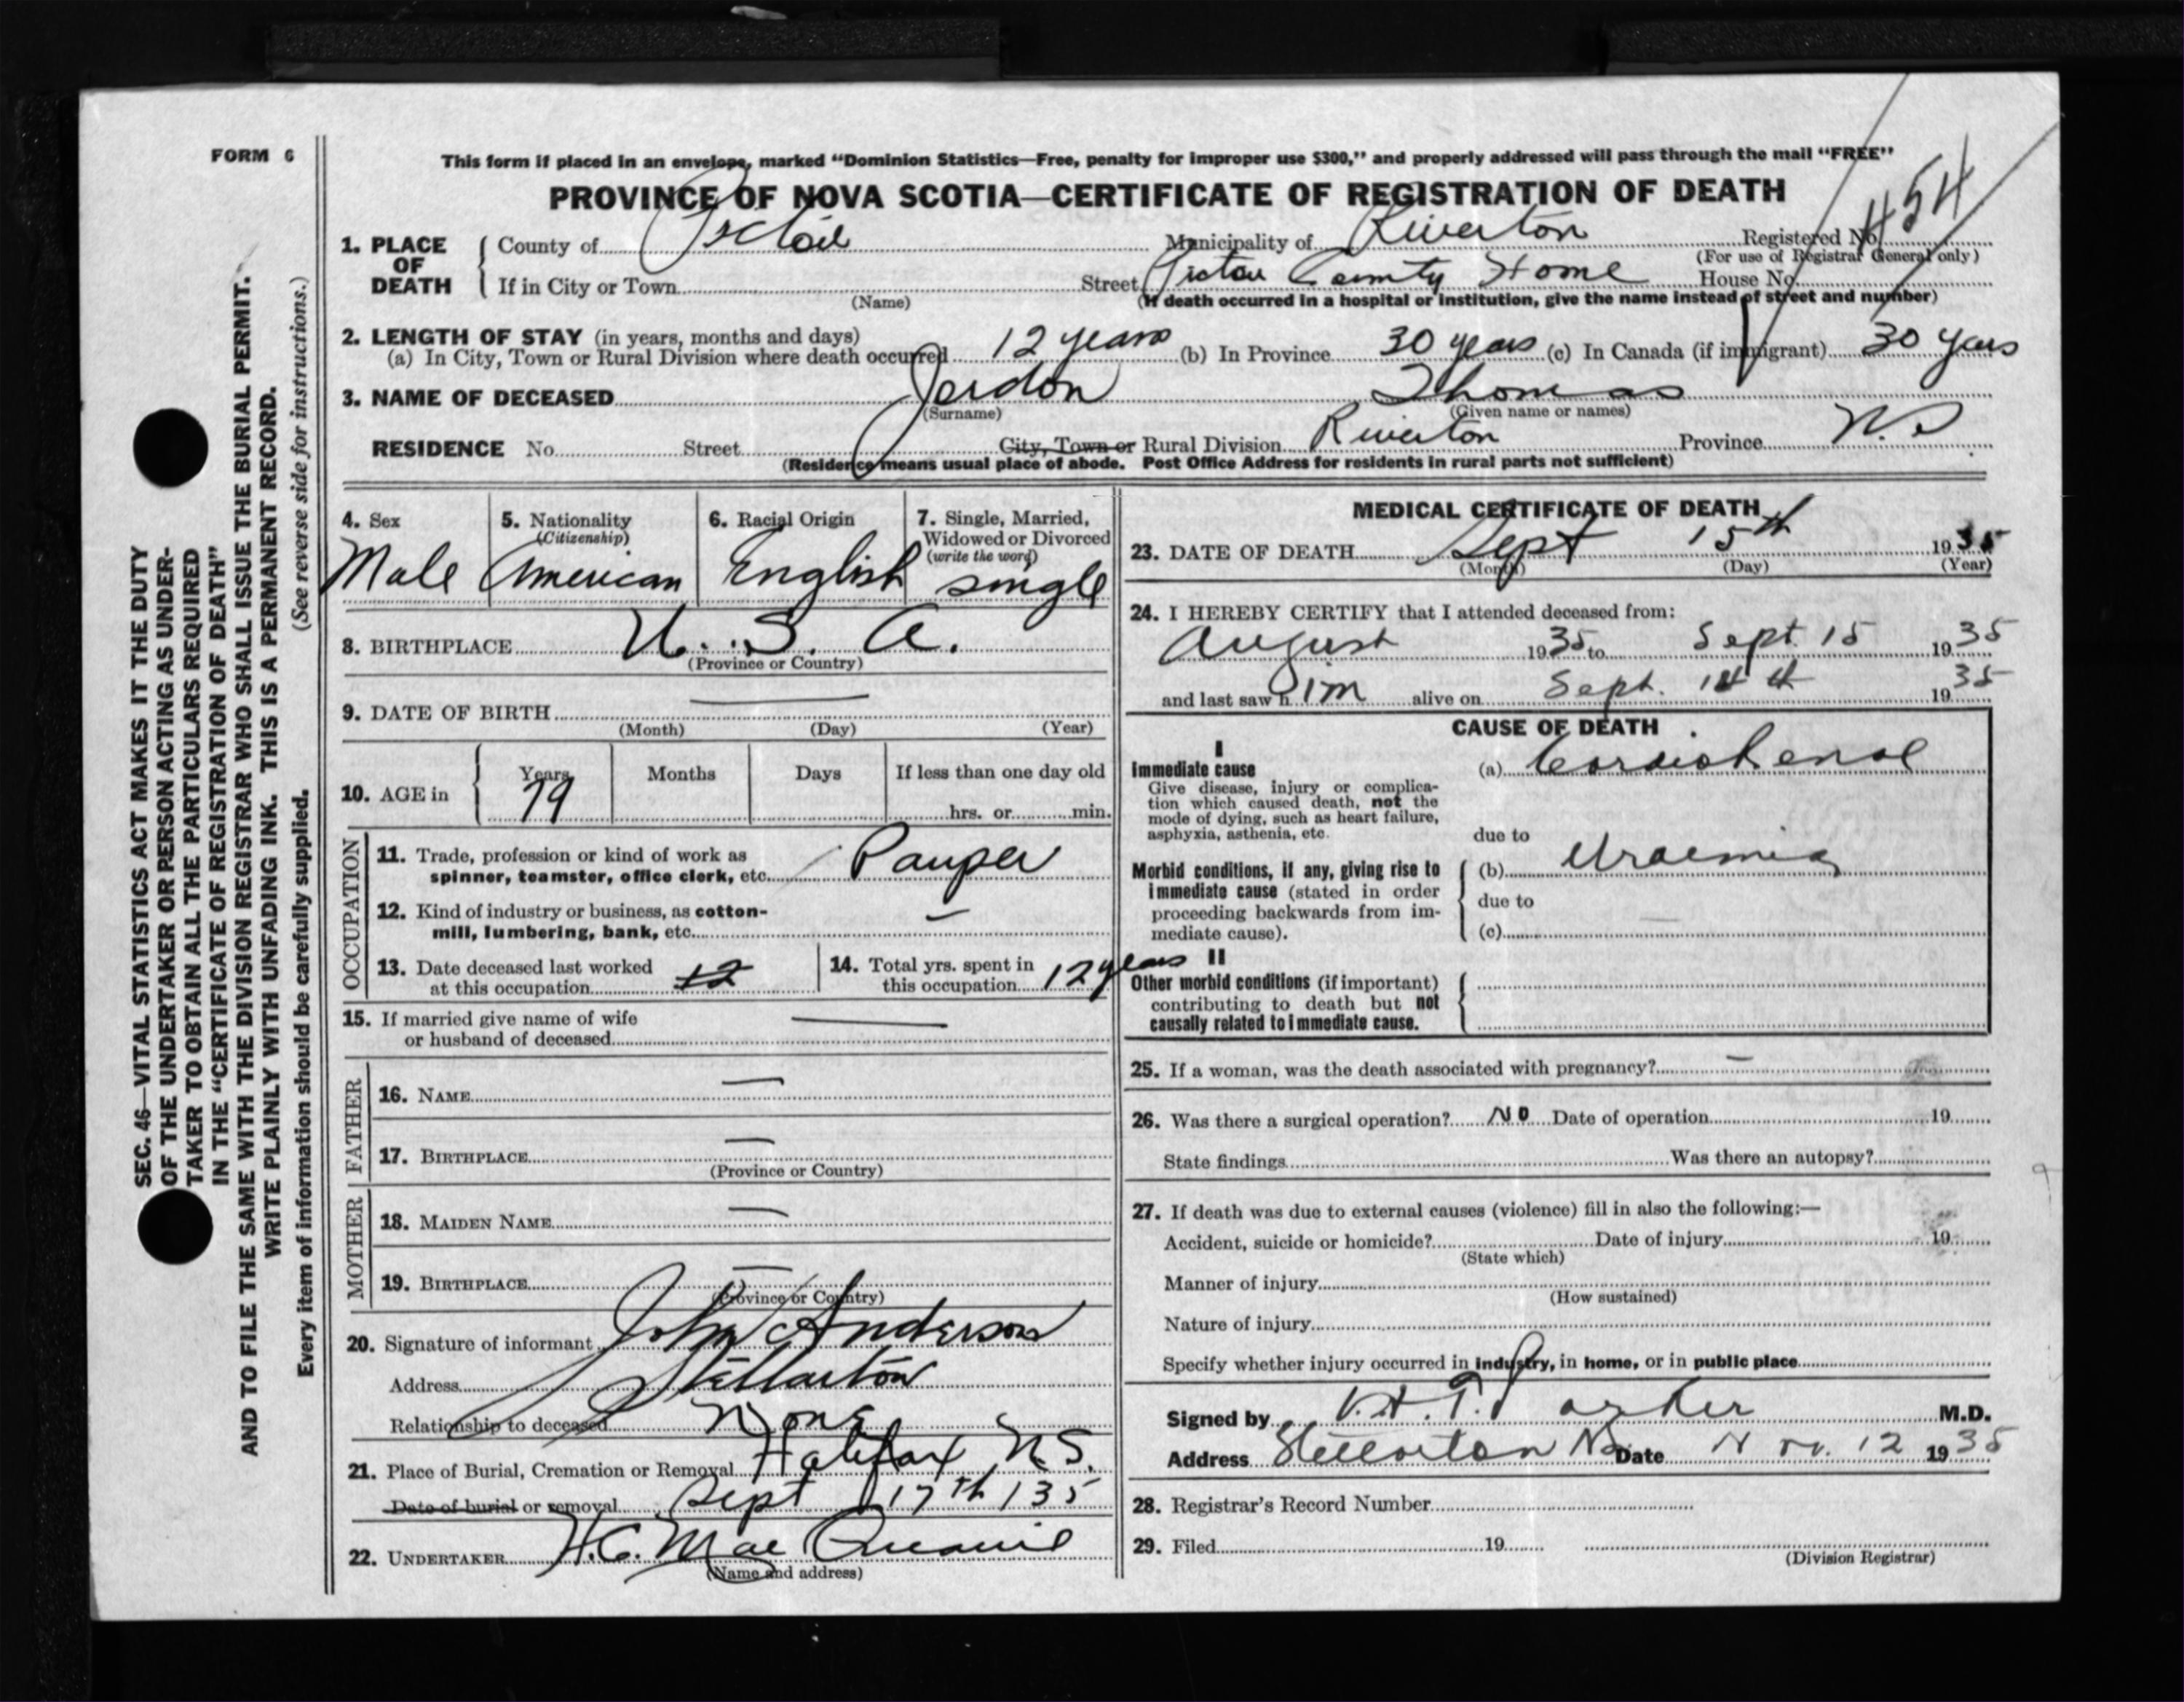 FORM 6
This form if placed in an envelope, marked "Dominion Statistics—Free, penalty for improper use $300," and properly addressed will pass through the mail "FREE"
PROVINCE OF NOVA SCOTIA—CERTIFICATE OF REGISTRATION OF DEATH
1. PLACE OF DEATH { County of Pictou Municipality of Riverton Registered No. 454
(For use of Registrar General only)
If in City or Town Street Pictou County Home House No.
(Name) (If death occurred in a hospital or institution, give the name instead of street and number)
2. LENGTH OF STAY (in years, months and days)
(a) In City, Town or Rural Division where death occurred 12 years (b) In Province 30 years (c) In Canada (if immigrant) 30 years
3. NAME OF DECEASED Jordon Thomas
(Surname) (Given name or names)
RESIDENCE No. Street City, Town or Rural Division Riverton Province N.S
(Residence means usual place of abode. Post Office Address for residents in rural parts not sufficient)
4. Sex 5. Nationality (Citizenship) 6. Racial Origin 7. Single, Married, Widowed or Divorced (write the word)
Male American English single
8. BIRTHPLACE U. S. A.
(Province or Country)
9. DATE OF BIRTH —
(Month) (Day) (Year)
10. AGE in { Years Months Days If less than one day old
79 hrs. or min.
OCCUPATION
11. Trade, profession or kind of work as
spinner, teamster, office clerk, etc. Pauper
12. Kind of industry or business, as cotton-
mill, lumbering, bank, etc. —
13. Date deceased last worked
at this occupation 12
14. Total yrs. spent in
this occupation 12 years
15. If married give name of wife
or husband of deceased —
FATHER
16. NAME —
17. BIRTHPLACE —
(Province or Country)
MOTHER
18. MAIDEN NAME —
19. BIRTHPLACE —
(Province or Country)
20. Signature of informant John Anderson
Address Stellarton
Relationship to deceased None
21. Place of Burial, Cremation or Removal Halifax N.S.
Date of burial or removal Sept 17th 135
22. UNDERTAKER H.C. Mac
(Name and address)
MEDICAL CERTIFICATE OF DEATH
23. DATE OF DEATH Sept 15th 1935
(Month) (Day) (Year)
24. I HEREBY CERTIFY that I attended deceased from:
August 1935 to Sept. 15 1935
and last saw him alive on Sept. 14 1935
CAUSE OF DEATH
I
Immediate cause (a) Cardio Renal
Give disease, injury or complica-
tion which caused death, not the
mode of dying, such as heart failure,
asphyxia, asthenia, etc. due to
Morbid conditions, if any, giving rise to (b) Uraemia
immediate cause (stated in order due to
proceeding backwards from im-
mediate cause). (c)
II
Other morbid conditions (if important)
contributing to death but not
causally related to immediate cause.
25. If a woman, was the death associated with pregnancy? —
26. Was there a surgical operation? NO Date of operation 19
State findings Was there an autopsy?
27. If death was due to external causes (violence) fill in also the following:—
Accident, suicide or homicide? Date of injury 19
(State which)
Manner of injury
(How sustained)
Nature of injury
Specify whether injury occurred in industry, in home, or in public place
Signed by V.H.T. Parker M.D.
Address Stellarton NS Date Nov. 12 1935
28. Registrar's Record Number
29. Filed 19
(Division Registrar)
SEC. 46—VITAL STATISTICS ACT MAKES IT THE DUTY
OF THE UNDERTAKER OR PERSON ACTING AS UNDER-
TAKER TO OBTAIN ALL THE PARTICULARS REQUIRED
IN THE "CERTIFICATE OF REGISTRATION OF DEATH"
AND TO FILE THE SAME WITH THE DIVISION REGISTRAR WHO SHALL ISSUE THE BURIAL PERMIT.
WRITE PLAINLY WITH UNFADING INK. THIS IS A PERMANENT RECORD.
Every item of information should be carefully supplied. (See reverse side for instructions.)